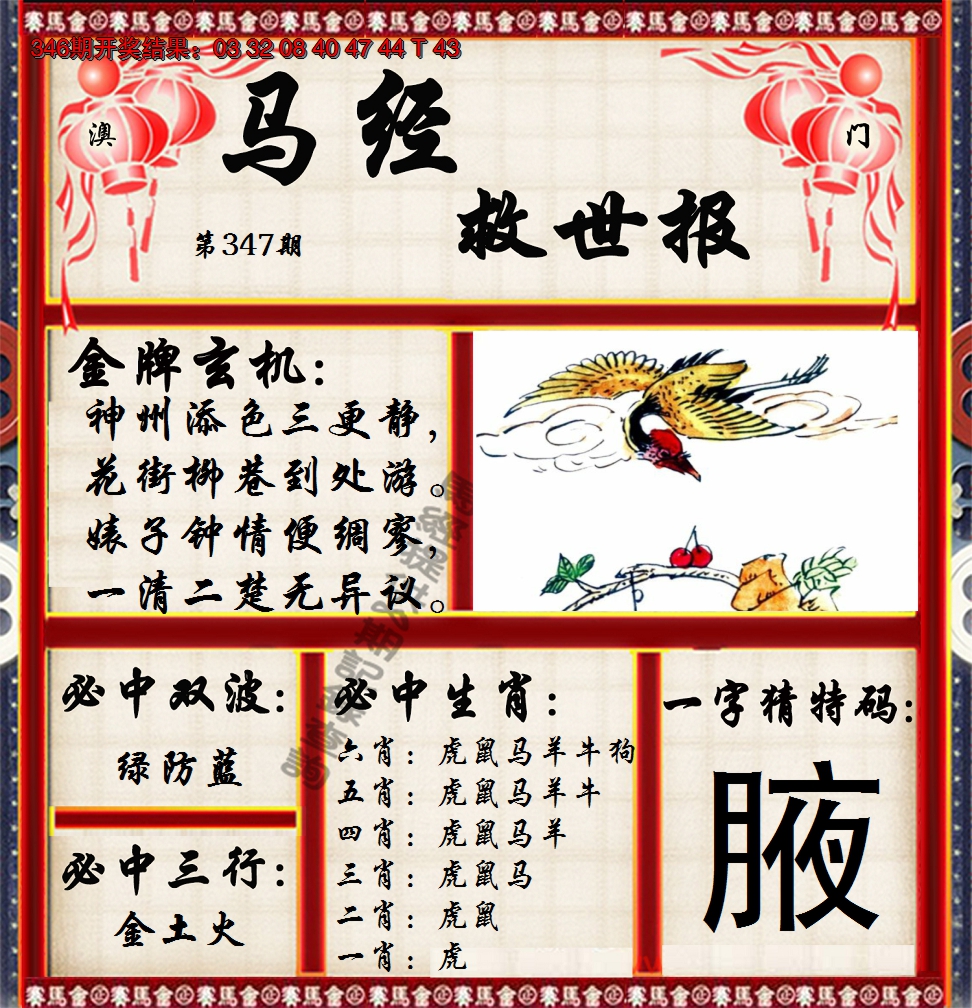 346期开奖结果：03 32 08 40 47 44 T 43
澳
门
马经
救世报
第347期
金牌玄机：
神州添色三更静，
花街柳巷到处游。
婊子钟情便绸寥，
一清二楚无异议。
必中双波：
绿防蓝
必中三行：
金土火
必中生肖：
六肖：虎鼠马羊牛狗
五肖：虎鼠马羊牛
四肖：虎鼠马羊
三肖：虎鼠马
二肖：虎鼠
一肖：虎
一字猜特码：
腋